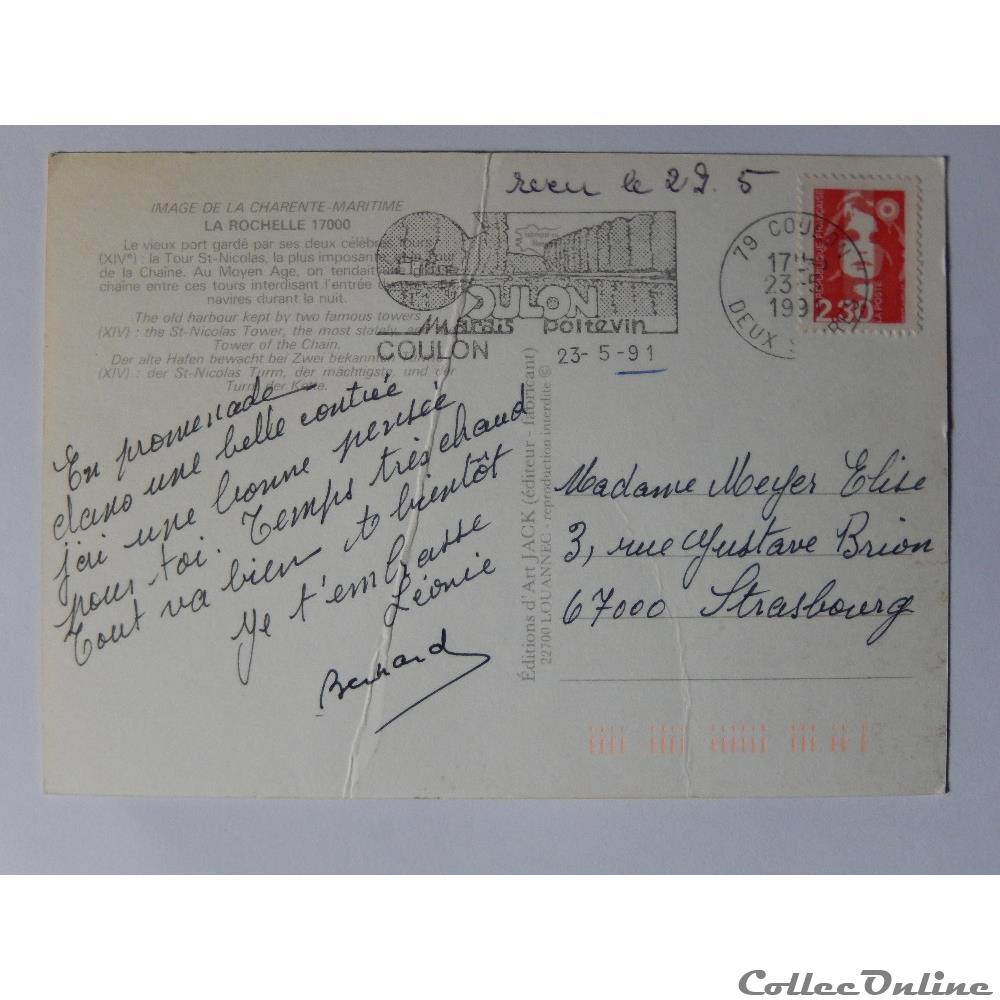 recu le 29. 5
IMAGE DE LA CHARENTE-MARITIME
LA ROCHELLE 17000
Le vieux port gardé par ses deux célèbres tours
(XIVe) : la Tour St-Nicolas, la plus imposante
de la Chaîne. Au Moyen Age, on tendait
chaîne entre ces tours interdisant l'entrée
navires durant la nuit.
The old harbour kept by two famous towers
(XIV) : the St-Nicolas Tower, the most stately
Tower of the Chain.
Der alte Hafen bewacht bei Zwei bekannten
(XIV) : der St-Nicolas Turm, der mächtigste, und der
Turm der Kette.
COULON
Marais poitevin
COULON 23-5-91
79 COULON
17
23-5
199
DEUX
REPUBLIQUE FRANÇAISE
LA POSTE
2.30
En promenade
dans une belle contrée
j'ai une bonne pensée
pour toi. Temps très chaud
Tout va bien
bientôt
Je t'embrasse
Léonie
Bernard
Éditions d'Art JACK (éditeur - fabricant)
22700 LOUANNEC - reproduction interdite ©
Madame Meyer Elise
3, rue Gustave Brion
67000 Strasbourg
CollecOnline